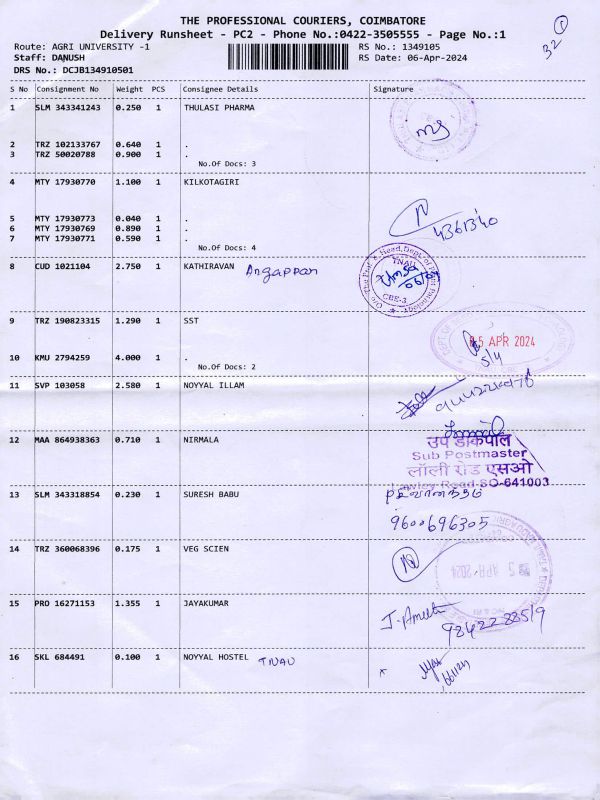 THE PROFESSIONAL COURIERS, COIMBATORE
Delivery Runsheet - PC2 - Phone No.:0422-3505555 - Page No.:1
32
1
Route: AGRI UNIVERSITY -1 RS No.: 1349105
Staff: DANUSH RS Date: 06-Apr-2024
DRS No.: DCJB134910501
S No Consignment No Weight PCS Consignee Details Signature
1 SLM 343341243 0.250 1 THULASI PHARMA
2 TRZ 102133767 0.640 1 .
3 TRZ 50020788 0.900 1 .
No.Of Docs: 3
4 MTY 17930770 1.100 1 KILKOTAGIRI
5 MTY 17930773 0.040 1 .
6 MTY 17930769 0.890 1 .
7 MTY 17930771 0.590 1 .
No.Of Docs: 4
8 CUD 1021104 2.750 1 KATHIRAVAN Angappan
TNAU
CBE-3
9 TRZ 190823315 1.290 1 SST
5 APR 2024
5/4
10 KMU 2794259 4.000 1 .
No.Of Docs: 2
11 SVP 103058 2.580 1 NOYYAL ILLAM
12 MAA 864938363 0.710 1 NIRMALA
उप डाकपाल
Sub Postmaster
लॉली रोड एसओ
Lawley Road SO-641003
13 SLM 343318854 0.230 1 SURESH BABU
9600696305
14 TRZ 360068396 0.175 1 VEG SCIEN
15 PRO 16271153 1.355 1 JAYAKUMAR
9842288519
16 SKL 684491 0.100 1 NOYYAL HOSTEL TNAU